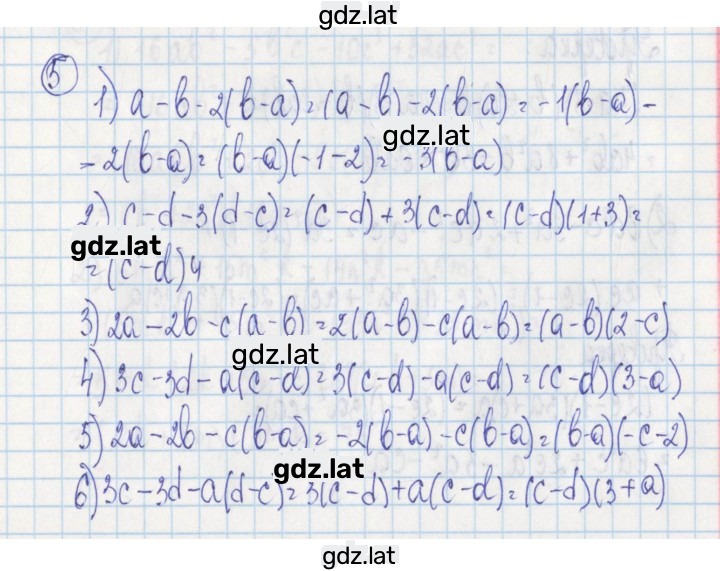 gdz.lat
5
1) a - b - 2(b-a) = (a-b) - 2(b-a) = -1(b-a) -
gdz.lat
- 2(b-a) = (b-a)(-1-2) = -3(b-a)
2) c-d-3(d-c) = (c-d) + 3(c-d) = (c-d)(1+3) =
gdz.lat
= (c-d)4
3) 2a - 2b - c(a-b) = 2(a-b) - c(a-b) = (a-b)(2-c)
gdz.lat
4) 3c - 3d - a(c-d) = 3(c-d) - a(c-d) = (c-d)(3-a)
5) 2a - 2b - c(b-a) = -2(b-a) - c(b-a) = (b-a)(-c-2)
gdz.lat
6) 3c - 3d - a(d-c) = 3(c-d) + a(c-d) = (c-d)(3+a)
gdz.lat